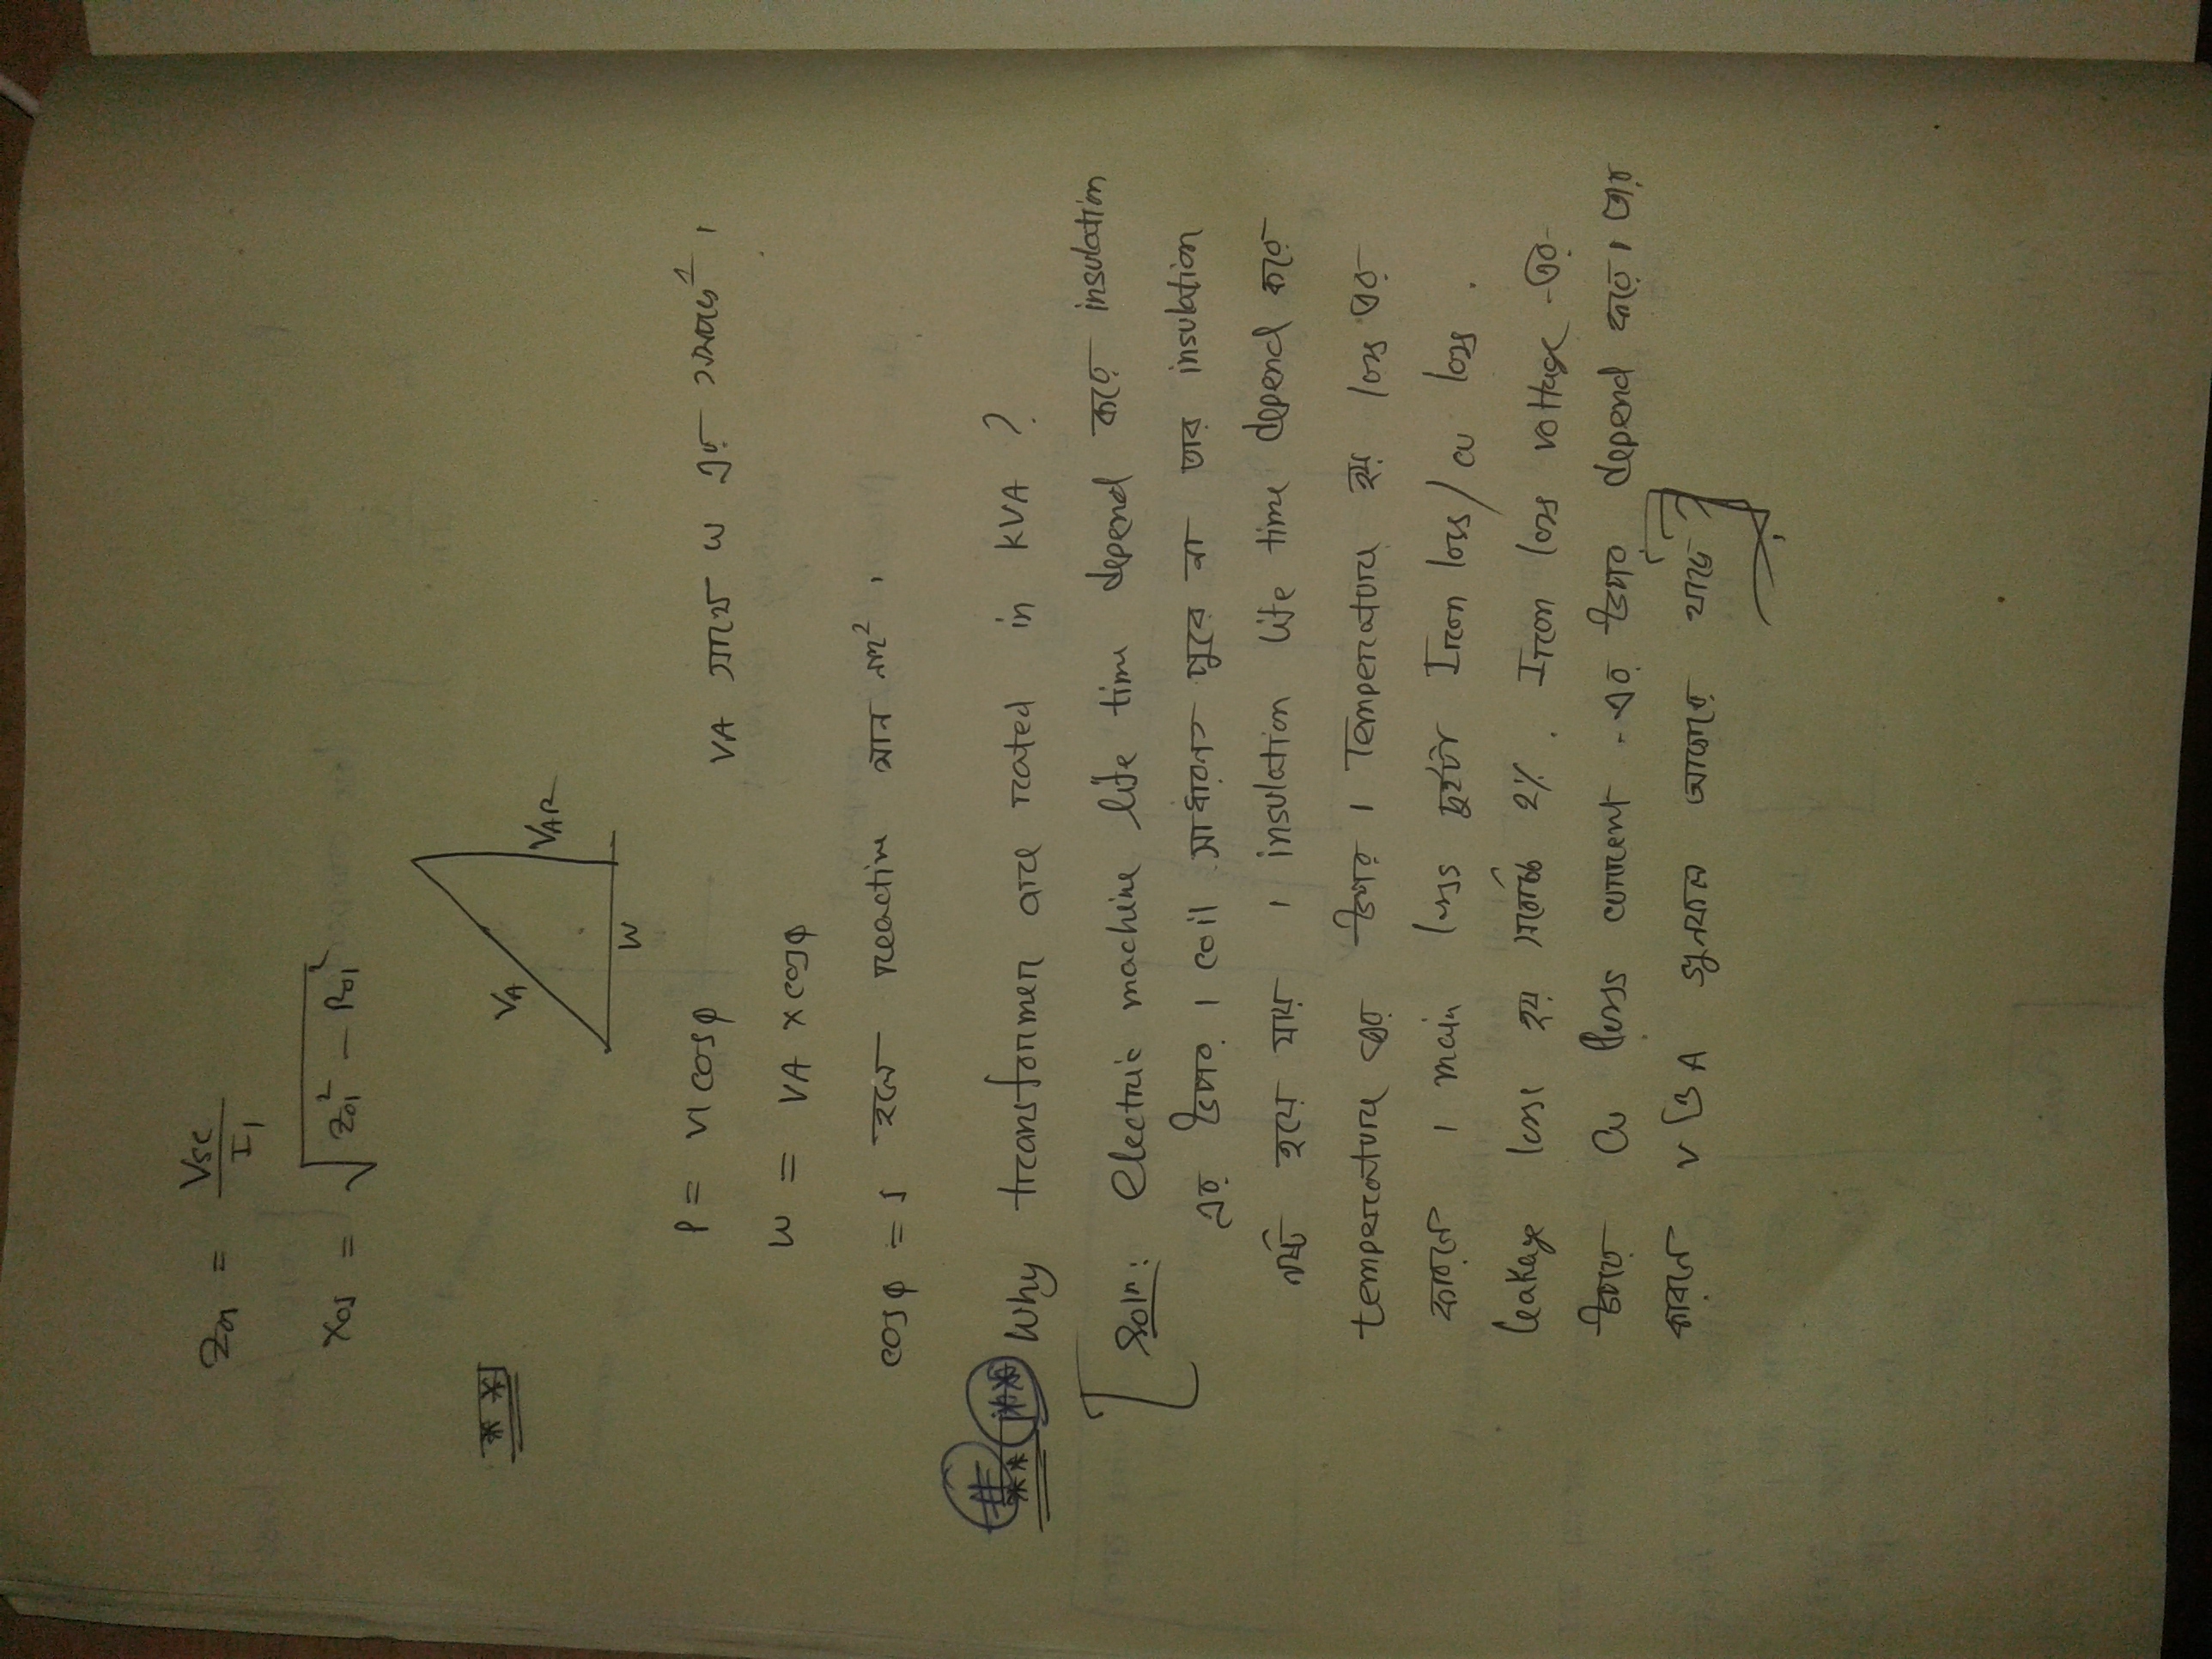 Z01 = Vsc / I1
X01 = √(Z01² − R01²)
**
VA
VAR
W
P = VI cosφ
VA সাথে W এর
W = VA × cosφ
cosφ = 1 হলে reactive মান
** Why transformer are rated in KVA ?
Soln: Electric machine life time depend করে insulation
এর উপর । coil সাধারনত পুরে না তার insulation
নষ্ট হয়ে যায় । insulation life time depend করে
temperature এর উপর । Temperature হয় loss এর
কারনে । main loss দুইটা Iron loss / cu loss .
leakage loss হয় সর্বোচ্চ 2% . Iron loss voltage -এর
উপরে Cu loss current -এর উপর depend করে । তার
কারনে V ও A গুনফল আকারে থাকে